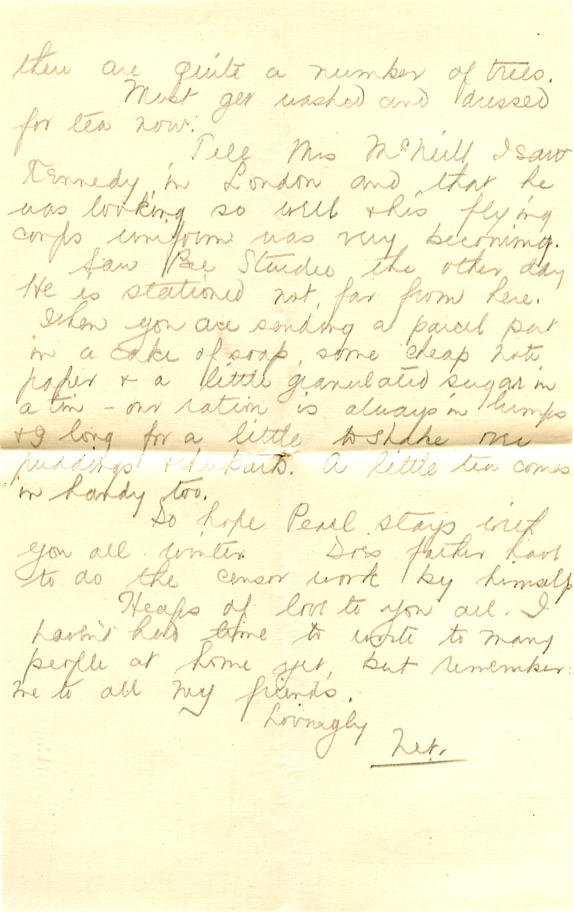 there are quite a number of trees.
Must get washed and dressed
for tea now.
Tell Mrs McNeill I saw
Kennedy in London and that he
was looking so well & his flying
corps uniform was very becoming.
Saw the other day
He is stationed not far from here.
When you are sending a parcel put
in a cake of soap, some cheap note
paper & a little granulated sugar in
a tin – our ration is always in lumps
& I long for a little to shake over
puddings & rhubarb. A little tea comes
in handy too.
Do hope Pearl stays with
you all winter Does father have
to do the censor work by himself
Heaps of love to you all. I
haven't had time to write to many
people at home yet, but remember
me to all my friends.
Lovingly